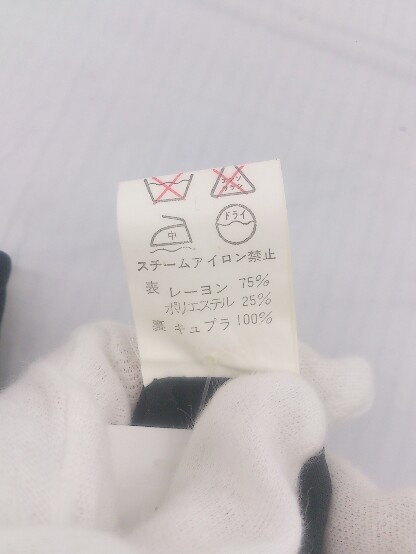 エンソ
サラシ
中
ドライ
スチームアイロン禁止
表 レーヨン 75%
ポリエステル 25%
裏 キュプラ 100%